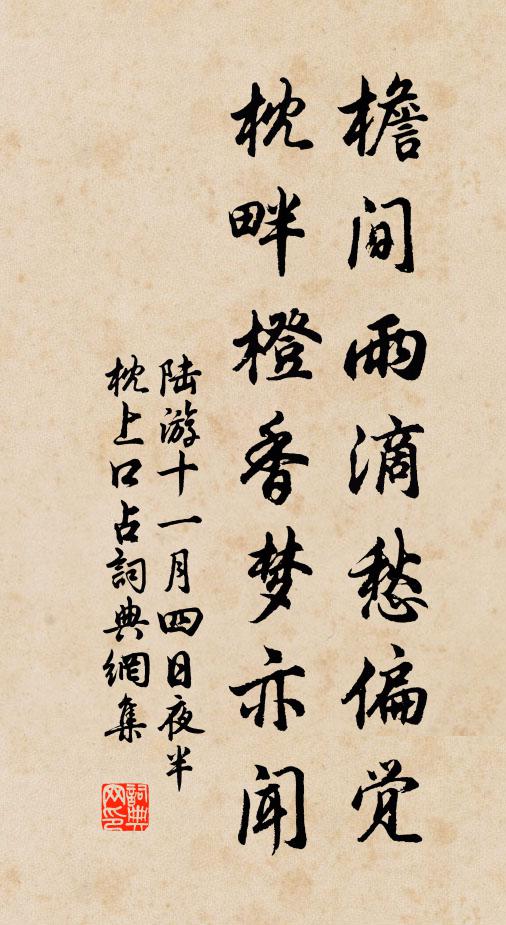 檐间雨滴愁偏觉
枕畔橙香梦亦闻
陆游十一月四日夜半
枕上口占詞典網集
詞典網印